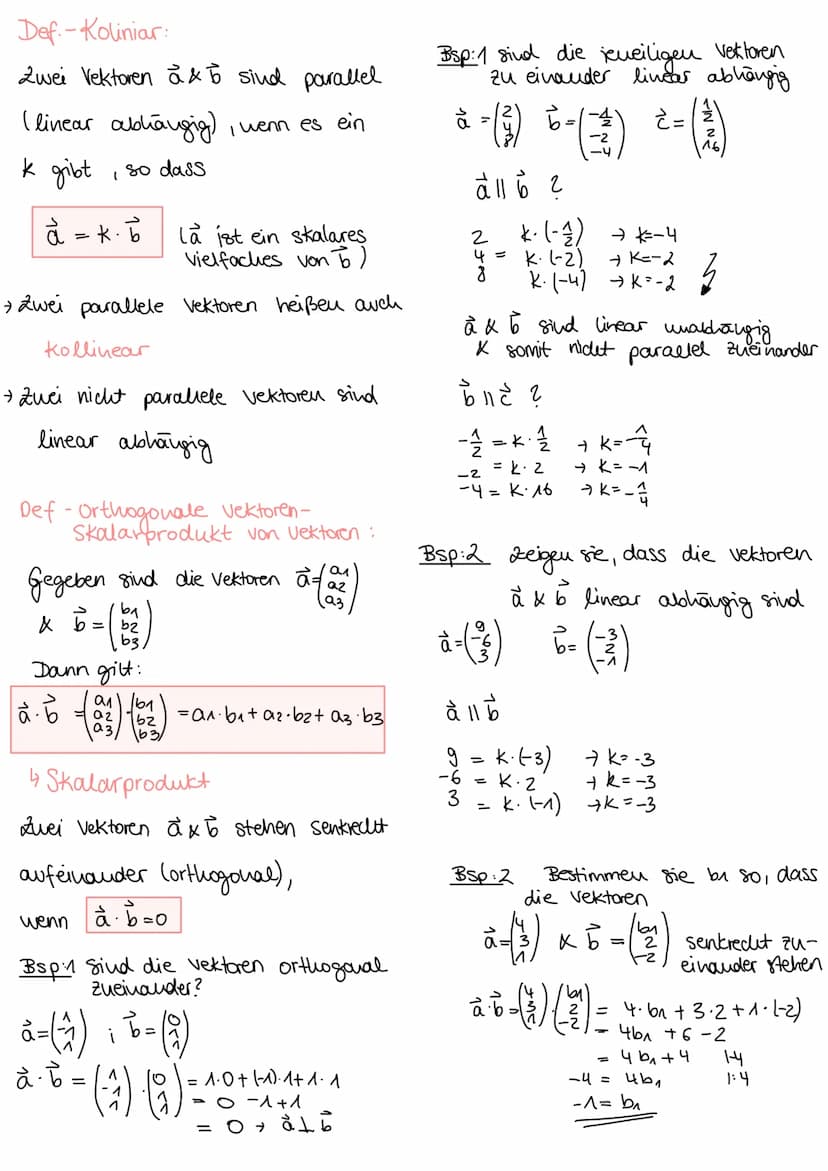 Def.-Koliniar:
Zwei Vektoren a⃗ & b⃗ sind parallel
(linear abhängig), wenn es ein
k gibt, so dass
a⃗ = k · b⃗ (a⃗ ist ein skalares
vielfaches von b⃗)
→ Zwei parallele Vektoren heißen auch
Kollinear
→ Zwei nicht parallele Vektoren sind
linear abhängig
Def - Orthogonale Vektoren-
Skalarprodukt von Vektoren:
Gegeben sind die Vektoren a⃗ = (a1 a2 a3)
& b⃗ = (b1 b2 b3)
Dann gilt:
a⃗ · b⃗ = (a1 a2 a3) · (b1 b2 b3) = a1·b1 + a2·b2 + a3·b3
↳ Skalarprodukt
Zwei Vektoren a⃗ & b⃗ stehen senkrecht
aufeinander (orthogonal),
wenn a⃗ · b⃗ = 0
Bsp:1 Sind die Vektoren orthogonal
zueinander?
a⃗ = (1 -1 1) ; b⃗ = (0 1 1)
a⃗ · b⃗ = (1 -1 1) · (0 1 1) = 1·0 + (-1)·1 + 1·1
= 0 - 1 + 1
= 0 → a⃗ ⊥ b⃗
Bsp:1 sind die jeweiligen Vektoren
zu einander linear abhängig
a⃗ = (2 4 8) b⃗ = (-1/2 -2 -4) c⃗ = (1/2 2 16)
a⃗ || b⃗ ?
2 k·(-1/2) → k=-4
4 = k·(-2) → k=-2
8 k·(-4) → k=-2
a⃗ & b⃗ sind linear unabhängig
& somit nicht parallel zueinander
b⃗ || c⃗ ?
-1/2 = k·1/2 → k=-1/4
-2 = k·2 → k=-1
-4 = k·16 → k=-1/4
Bsp:2 zeigen sie, dass die Vektoren
a⃗ & b⃗ linear abhängig sind
a⃗ = (9 -6 3) b⃗ = (-3 2 -1)
a⃗ || b⃗
9 = k·(-3) → k=-3
-6 = k·2 → k=-3
3 = k·(-1) → k=-3
Bsp:2 Bestimmen sie b1 so, dass
die Vektoren
a⃗ = (4 3 1) & b⃗ = (b1 2 -2) senkrecht zu-
einander stehen
a⃗·b⃗ = (4 3 1) · (b1 2 -2) = 4·b1 + 3·2 + 1·(-2)
= 4b1 + 6 - 2
= 4b1 + 4 |-4
-4 = 4b1 |:4
-1 = b1